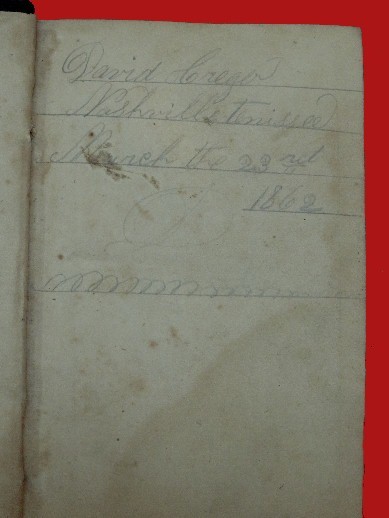 David Cregor
Nashville tenissee
March the 23rd
1862